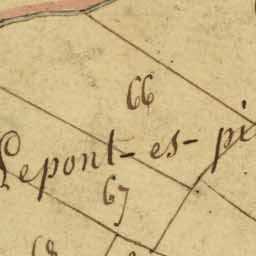 66
Lepont-es-pi
67
68